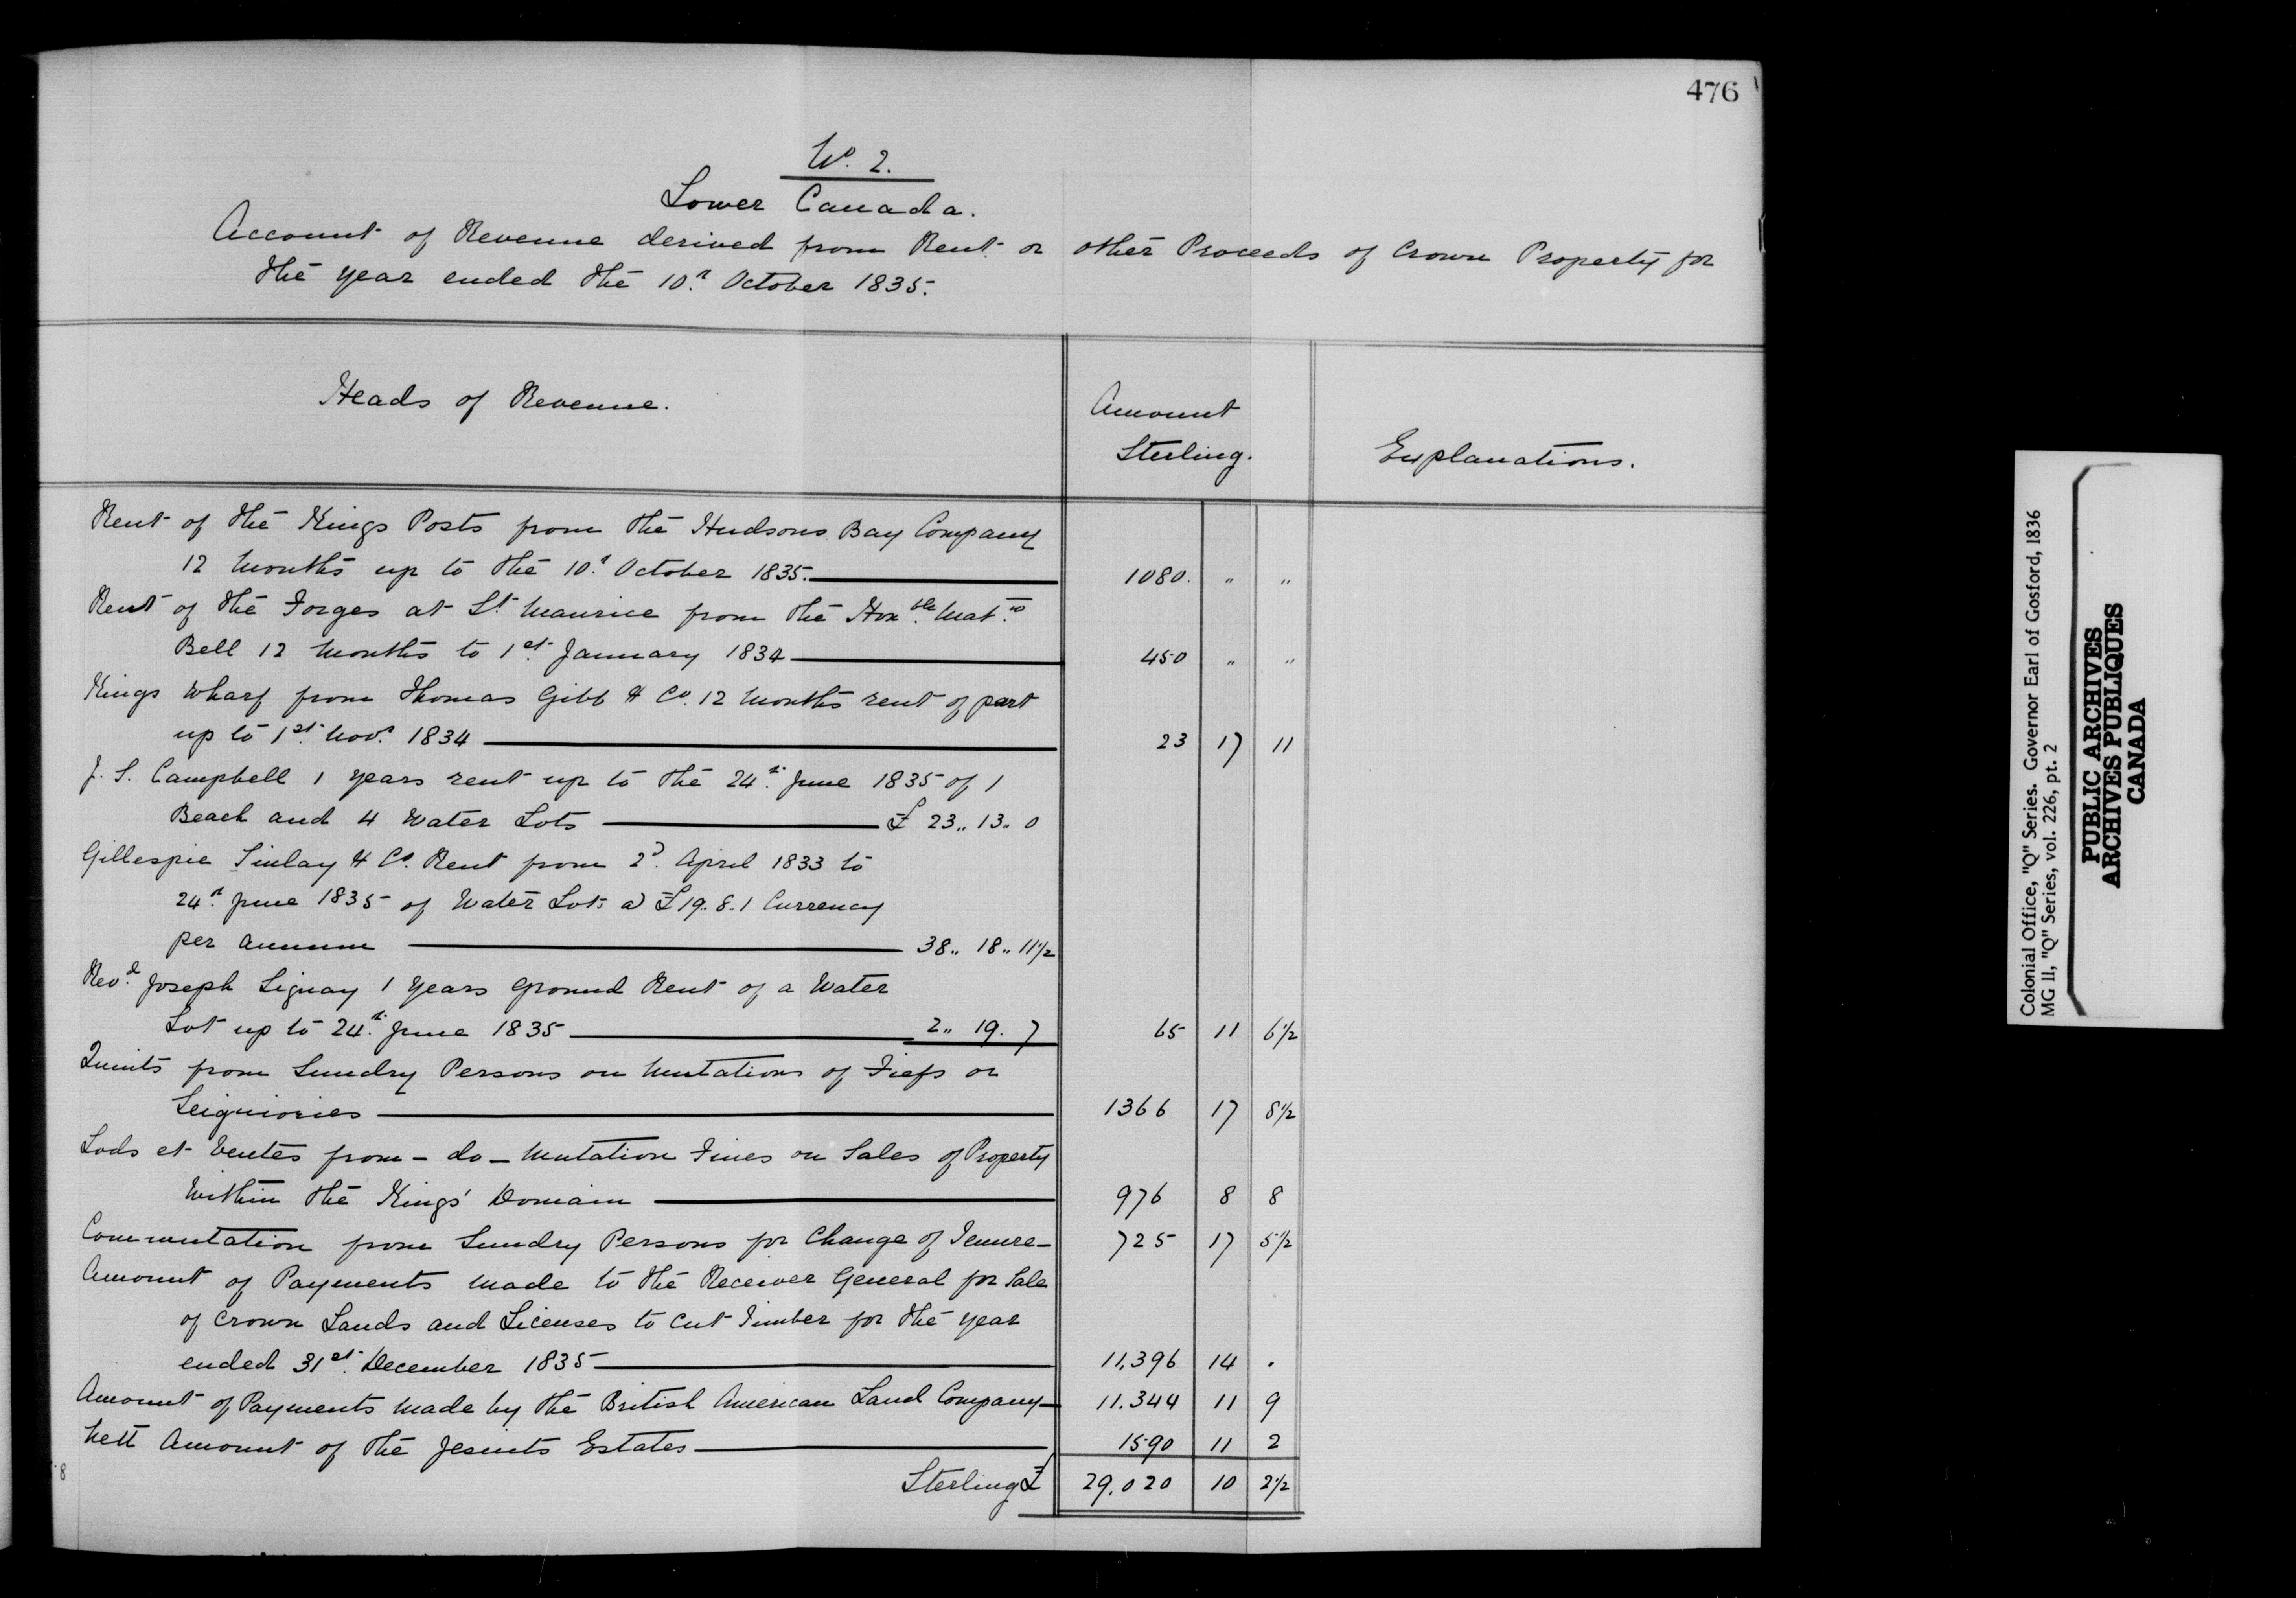 476
No. 2.
Lower Canada.
Account of Revenue derived from Rent or other Proceeds of Crown Property for
the year ended the 10th October 1835.
Heads of Revenue.
Amount
Sterling.
Explanations.
Rent of the Kings Posts from the Hudsons Bay Company
12 Months up to the 10th October 1835. 1080. " "
Rent of the Forges at St Maurice from the Honble. Matw.
Bell 12 Months to 1st January 1834 450 " "
Kings Wharf from Thomas Gibb & Co. 12 Months rent of part
up to 1st Novr. 1834 23 17 11
J. S. Campbell 1 years rent up to the 24th June 1835 of 1
Beach and 4 Water Lots £ 23,, 13,, 0
Gillespie Finlay & Co. Rent from 2d. April 1833 to
24th June 1835 of Water Lots a) £19. 8. 1 Currency
per annum 38,, 18,, 11 1/2
Revd. Joseph Signay 1 Years Ground Rent of a Water
Lot up to 24th June 1835 2,, 19. 7 65 11 6 1/2
Quints from Sundry Persons on Mutations of Fiefs or
Seigniories 1366 17 8 1/2
Lods et Ventes from - do - Mutation Fines on Sales of Property
Within the Kings' Domain 976 8 8
Commutation from Sundry Persons for Change of Tenure 725 17 5 1/2
Amount of Payments made to the Receiver General for Sale
of Crown Lands and Licenses to cut Timber for the year
ended 31st. December 1835 11,396 14 .
Amount of Payments made by the British American Land Company 11.344 11 9
Nett Amount of the Jesuits Estates 1590 11 2
8
Sterling £ 29.020 10 2 1/2
Colonial Office, "Q" Series. Governor Earl of Gosford, 1836
MG 11, "Q" Series, vol. 226, pt. 2
PUBLIC ARCHIVES
ARCHIVES PUBLIQUES
CANADA